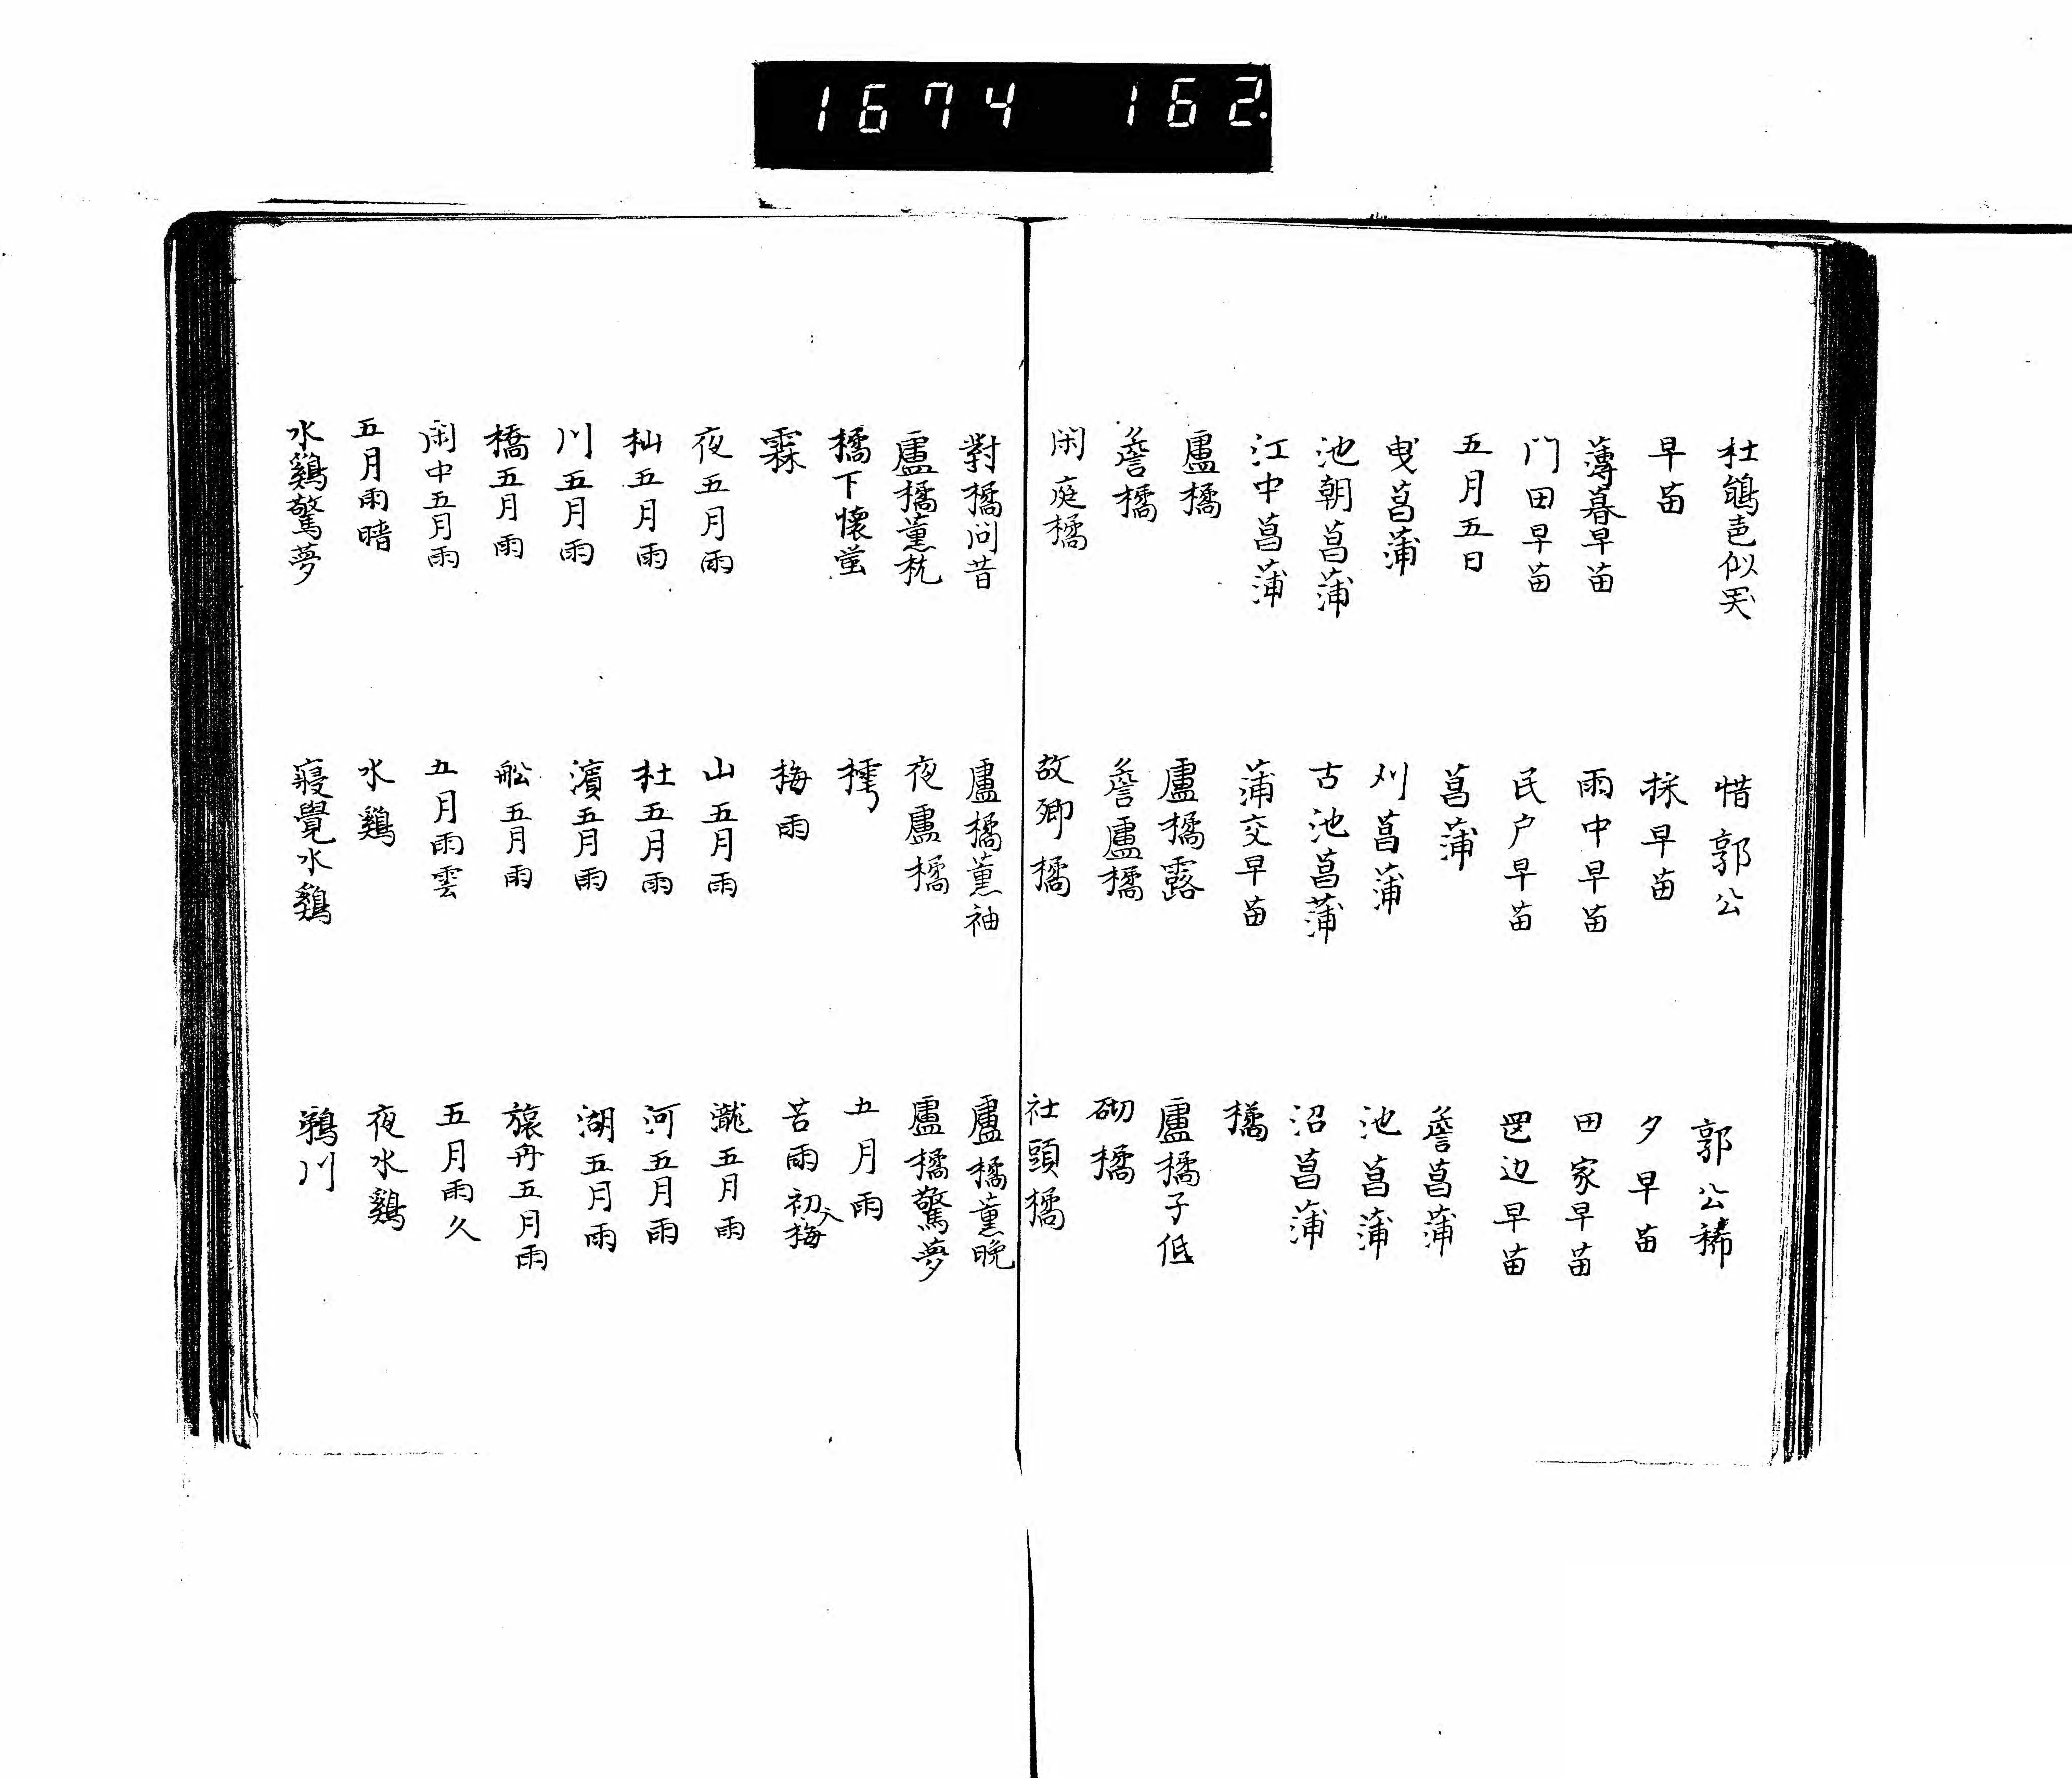 1674 162.
杜鵑色似哭 惜郭公 郭公稀
早苗 採早苗 夕早苗
薄暮早苗 雨中早苗 田家早苗
门田早苗 民户早苗 辺早苗
五月五日 菖蒲 簷菖蒲
曳菖蒲 刈菖蒲 池菖蒲
池朝菖蒲 古池菖蒲 沼菖蒲
江中菖蒲 蒲交早苗 橘
盧橘 盧橘露 盧橘子低
簷橘 簷盧橘 砌橘
闲庭橘 故郷橘 社頭橘
對橘问昔 盧橘薫袖 盧橘薫晩
盧橘薫枕 夜盧橘 盧橘驚夢
橘下懐蛍 樗 五月雨
霖 梅雨 苦雨 初入梅
夜五月雨 山五月雨 瀧五月雨
杣五月雨 杜五月雨 河五月雨
川五月雨 濱五月雨 湖五月雨
橋五月雨 舩五月雨 旅舟五月雨
闲中五月雨 五月雨雲 五月雨久
五月雨晴 水鷄 夜水鷄
水鷄驚夢 寝覺水鷄 鵜川